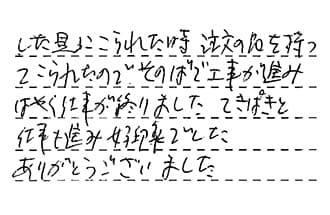 した具にこられた時 注文の品を持っ
てこられたのでそのばで工事が進み
はやく仕事が終りました てきぱきと
仕事も進み好印象でした
ありがとうございました